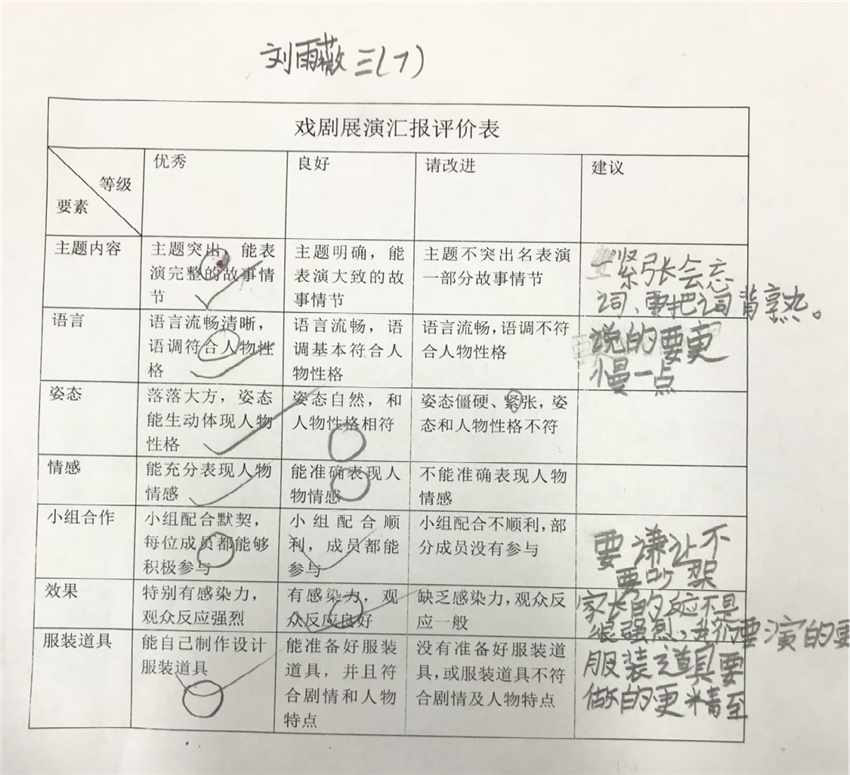 刘雨薇 三(7)
戏剧展演汇报评价表
等级
要素
优秀
良好
请改进
建议
主题内容
主题突出，能表
演完整的故事情
节
主题明确，能
表演大致的故
事情节
主题不突出名表演
一部分故事情节
一紧张会忘
词、要把词背熟。
语言
语言流畅清晰，
语调符合人物性
格
语言流畅，语
调基本符合人
物性格
语言流畅，语调不符
合人物性格
说的要更
慢一点
姿态
落落大方，姿态
能生动体现人物
性格
姿态自然，和
人物性格相符
姿态僵硬、紧张，姿
态和人物性格不符
情感
能充分表现人物
情感
能准确表现人
物情感
不能准确表现人物
情感
小组合作
小组配合默契，
每位成员都能够
积极参与
小组配合顺
利，成员都能
参与
小组配合不顺利，部
分成员没有参与
要谦让不
要吵架
效果
特别有感染力，
观众反应强烈
有感染力，观
众反应良好
缺乏感染力，观众反
应一般
家长的反应不是
很强烈，我们要演的更
服装道具
能自己制作设计
服装道具
能准备好服装
道具，并且符
合剧情和人物
特点
没有准备好服装道
具，或服装道具不符
合剧情及人物特点
服装道具要
做的更精至